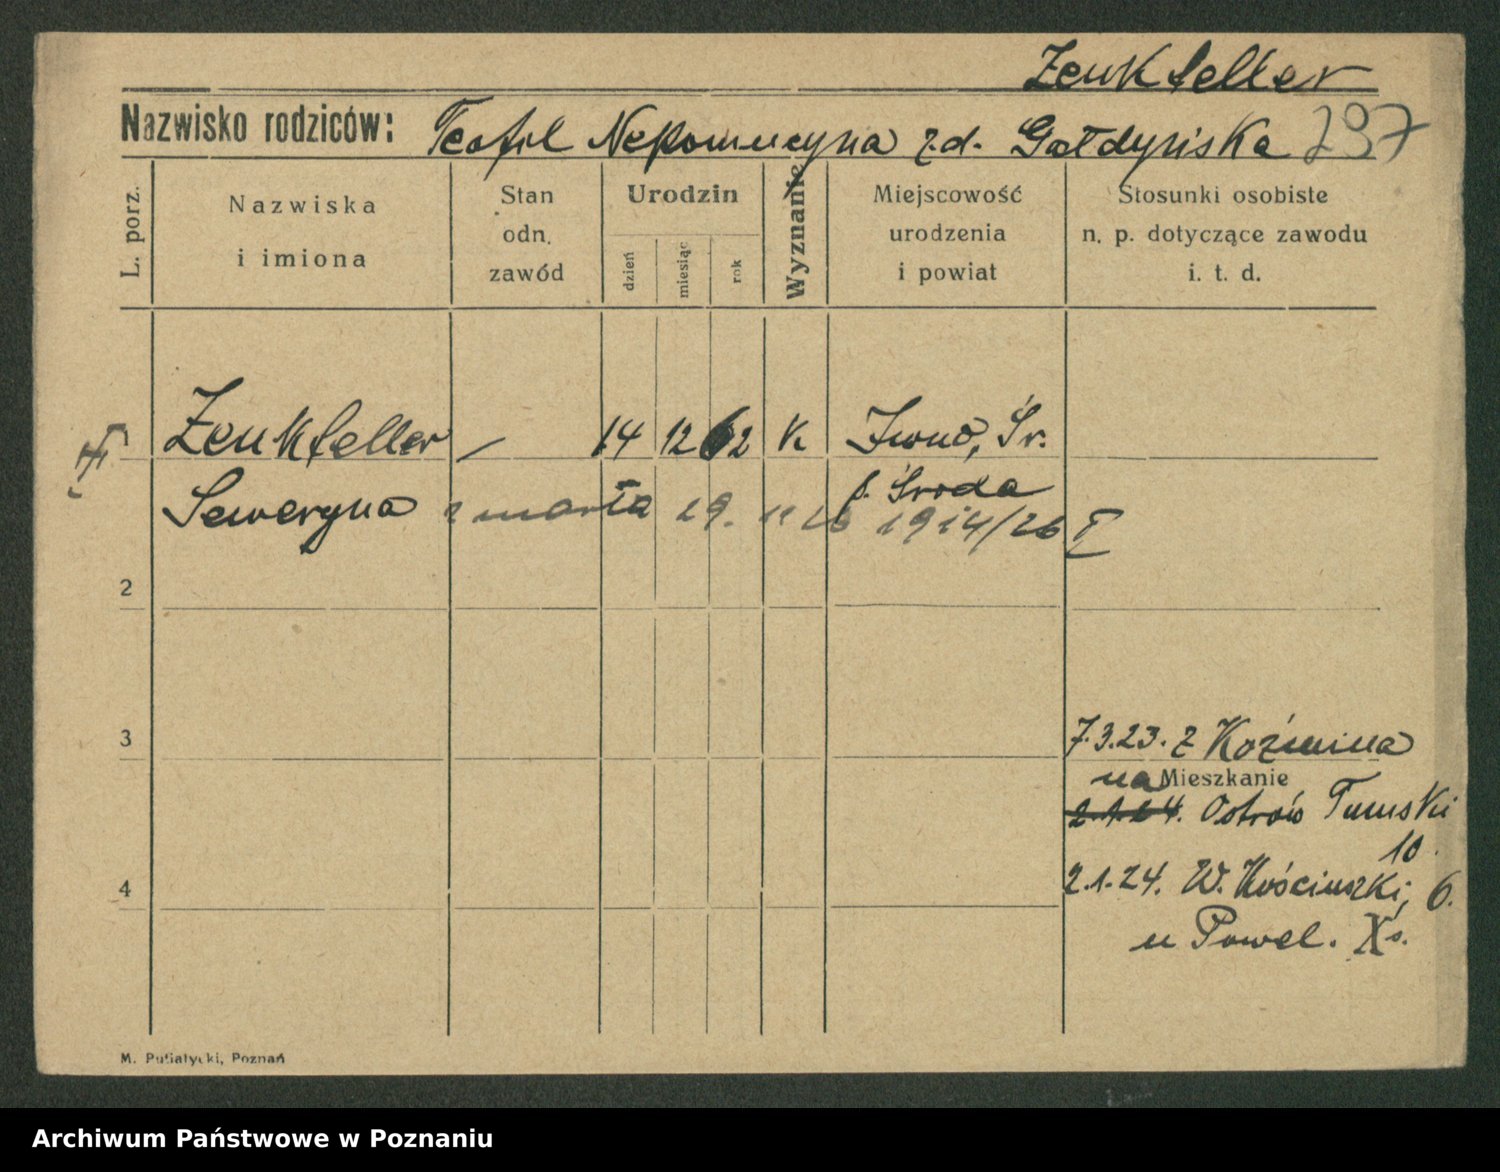 Zenkteller
Nazwisko rodziców: Teofil Nepomucyna z d. Gałdyńska 297
L. porz.
Nazwiska
i imiona
Stan
odn.
zawód
Urodzin
dzień
miesiąc
rok
Wyznanie
Miejscowość
urodzenia
i powiat
Stosunki osobiste
n. p. dotyczące zawodu
i. t. d.
1 Zenkteller — 14 12 62 k Iwno, Śr.
p. Środa
Seweryna zmarła 29. 11 26 1914/26 I
2
3
7.3.23. z Koźmina
na Mieszkanie
2.1.24. Ostrów Tumski
10.
4
2.1.24. W. Kościuszki, 6.
u Pawel. Xs.
M. Putiatycki, Poznań
Archiwum Państwowe w Poznaniu